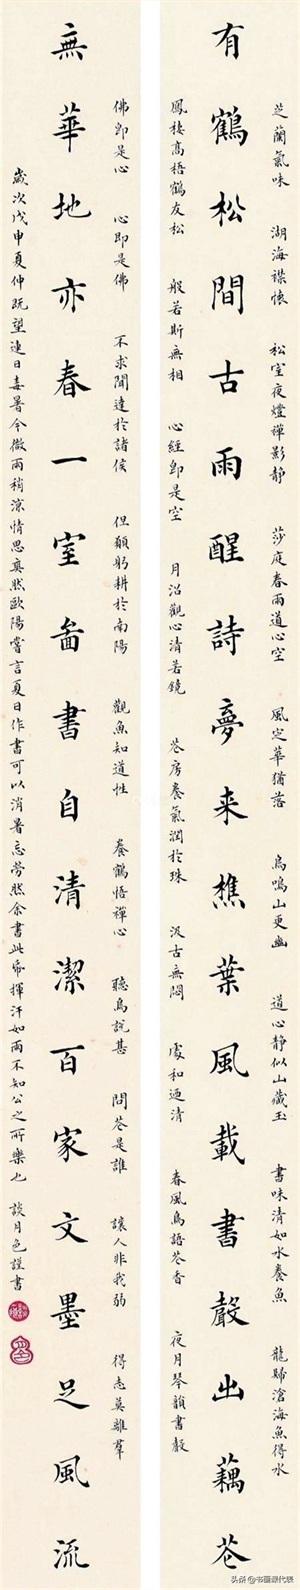 芝蘭氣味 湖海襟懷 松室夜燈禪影靜 莎庭春雨道心空 風定華猶落 鳥鳴山更幽 道心靜似山藏玉 書味清如水養魚 龍歸滄海魚得水
有鶴松間古雨醒詩夢来樵葉風載書聲出藕花
鳳棲高梧鶴友松 般若斯無相 心經即是空 月沼觀心清若鏡 花房養氣潤於珠 汲古無悶 處和迺清 春風鳥語花香 夜月琴韻書聲
佛即是心 心即是佛 不求聞達於諸侯 但願躬耕於南陽 觀魚知道性 養鶴悟禪心 聽鳥說甚 問花是誰 讓人非我弱 得志莫離羣
無華地亦春一室啚書自清潔百家文墨足風流
歲次戊申夏仲既望連日毒暑今微雨稍涼情思爽然歐陽嘗言夏日作書可以消暑忘勞然余書此幀揮汗如雨不知公之所樂也 談月色謹書
头条